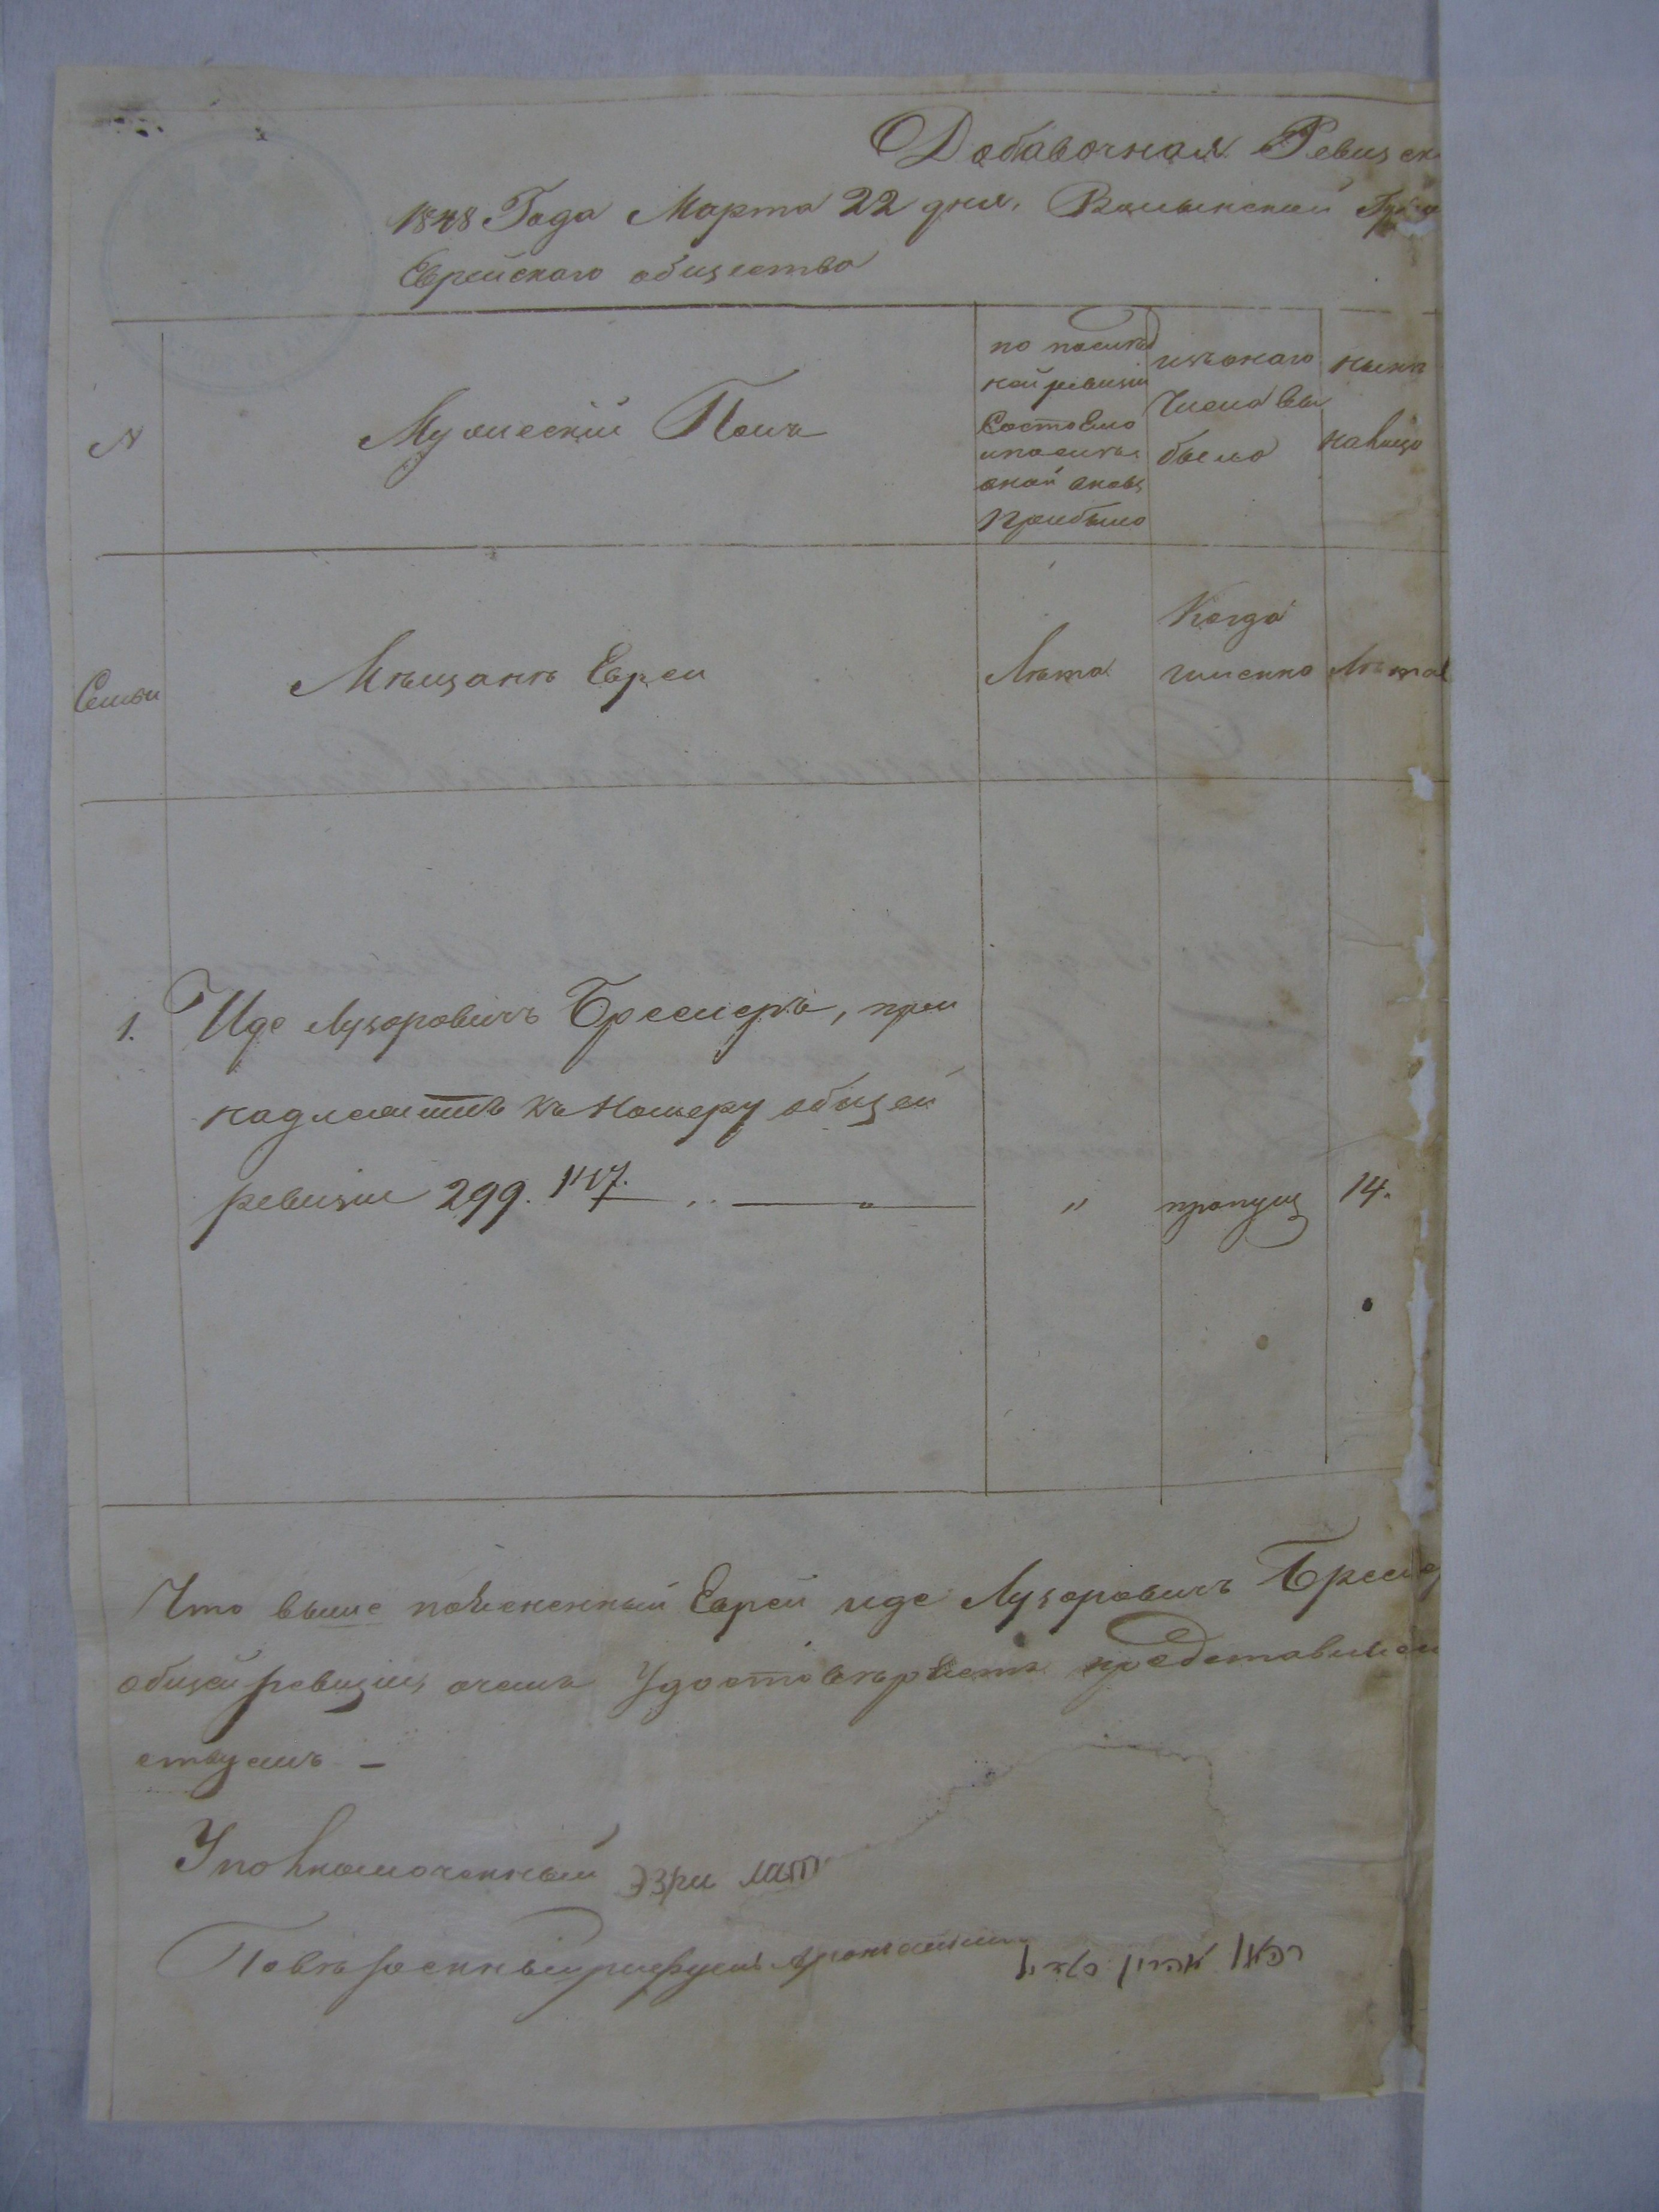 Добавочная Ревизск
1848 Года Марта 22 дня, Волынской Губе
Еврейскаго общества
N
Мужескій Полъ
по послѣд
ней ревизіи
Состояло
и послѣ
оной вновь
прибыло
изъ онаго
Числа вы
было
нынѣ
на лицо
Семьи
Мѣщанъ Евреи
Лѣта
Когда
именно
Лѣта
1. Иде Лузоровичъ Бреслеръ, при
надлежитъ къ Номеру общей
ревизіи 299.
" пропущ 14.
Что выше поясненный Еврей иде Лузоровичъ Бресле
общей ревизіи, очемъ Удостовѣряетъ представили
ствуемъ —
Уполномоченный Эзри
Повѣренный